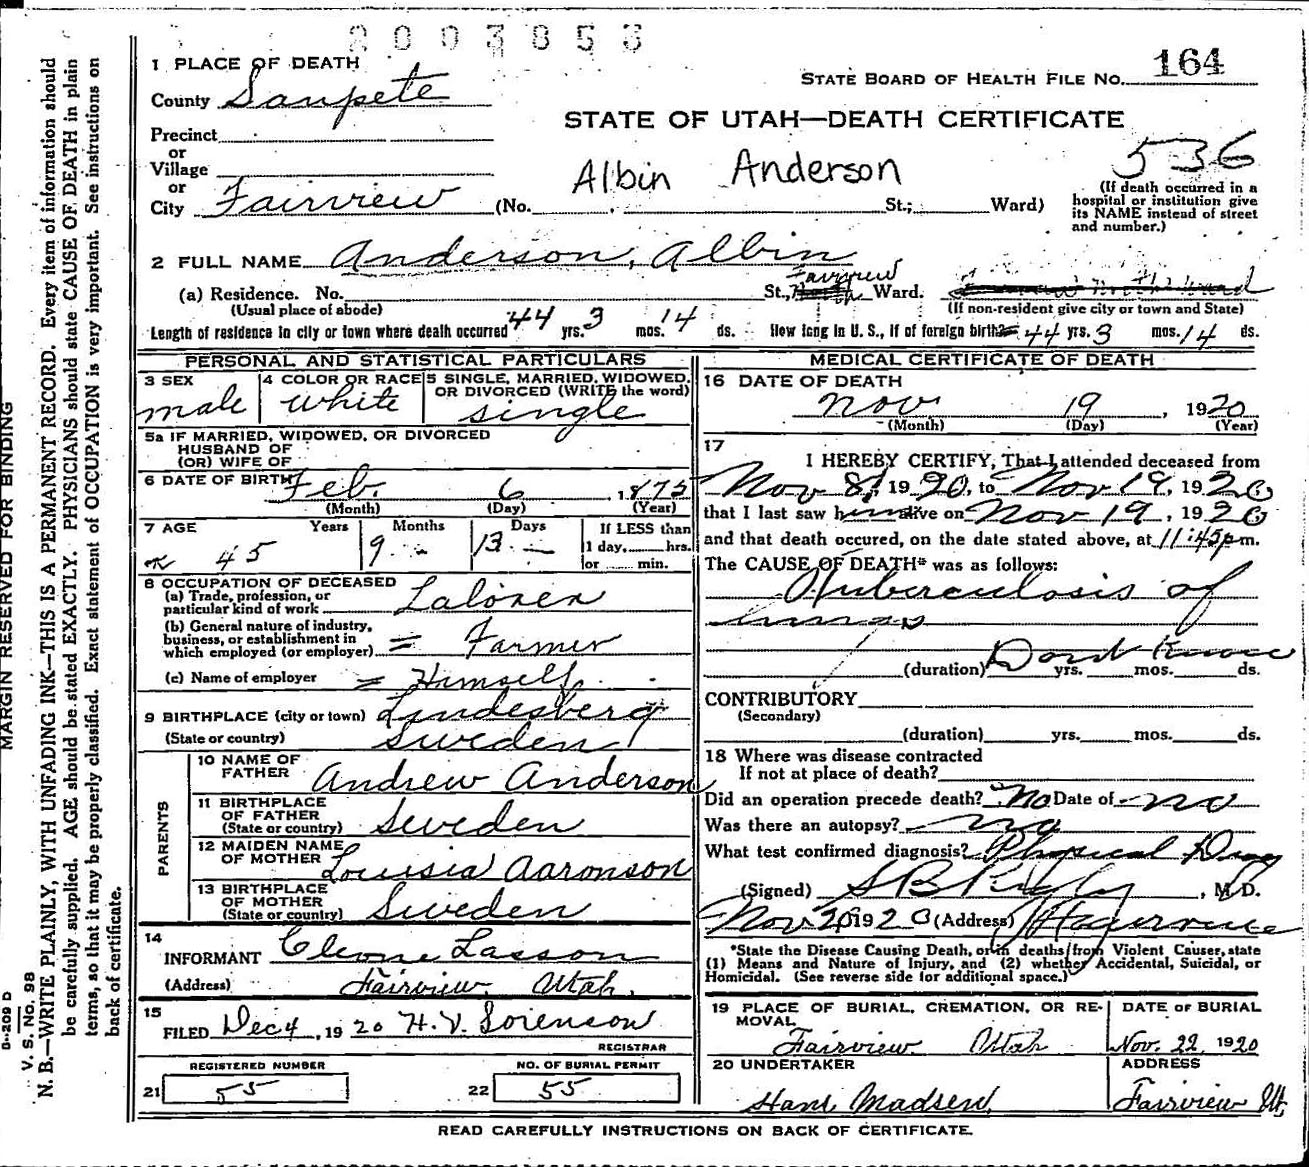 2003853
1 PLACE OF DEATH
STATE BOARD OF HEALTH FILE NO. 164
County Sanpete
STATE OF UTAH—DEATH CERTIFICATE
Precinct
or
Village
or
City Fairview (No. St.; Ward)
Albin Anderson
536
(If death occurred in a hospital or institution give its NAME instead of street and number.)
2 FULL NAME Anderson, Albin
(a) Residence. No. St., Fairview North Ward.
(Usual place of abode)
(If non-resident give city or town and State)
Length of residence in city or town where death occurred 44 yrs. 3 mos. 14 ds. How long in U. S., if of foreign birth? 44 yrs. 3 mos. 14 ds.
PERSONAL AND STATISTICAL PARTICULARS
3 SEX
male
4 COLOR OR RACE
white
5 SINGLE, MARRIED, WIDOWED, OR DIVORCED (WRITE the word)
single
5a IF MARRIED, WIDOWED, OR DIVORCED
HUSBAND OF
(OR) WIFE OF
6 DATE OF BIRTH Feb. 6, 1875
(Month) (Day) (Year)
7 AGE Years Months Days If LESS than
45 9 13 1 day, hrs.
or min.
8 OCCUPATION OF DECEASED
(a) Trade, profession, or
particular kind of work Laborer
(b) General nature of industry,
business, or establishment in
which employed (or employer) = Farmer
(c) Name of employer = Himself
9 BIRTHPLACE (city or town) Lindesberg
(State or country) Sweden
PARENTS
10 NAME OF FATHER Andrew Anderson
11 BIRTHPLACE OF FATHER
(State or country) Sweden
12 MAIDEN NAME OF MOTHER Louisia Aaronson
13 BIRTHPLACE OF MOTHER
(State or country) Sweden
14
INFORMANT Cleone Lasson
(Address) Fairview Utah.
15
FILED Dec 4, 1920 H. V. Sorenson
REGISTRAR
REGISTERED NUMBER
21 55
NO. OF BURIAL PERMIT
22 55
MEDICAL CERTIFICATE OF DEATH
16 DATE OF DEATH
Nov 19, 1920
(Month) (Day) (Year)
17
I HEREBY CERTIFY, That I attended deceased from
Nov 8, 1920, to Nov 19, 1920
that I last saw him alive on Nov 19, 1920
and that death occured, on the date stated above, at 11:45 p m.
The CAUSE OF DEATH* was as follows:
Tuberculosis of
lungs
(duration) Dont Know yrs. mos. ds.
CONTRIBUTORY
(Secondary)
(duration) yrs. mos. ds.
18 Where was disease contracted
If not at place of death?
Did an operation precede death? No Date of no
Was there an autopsy? no
What test confirmed diagnosis? Physical Diag
(Signed) S B Rigby, M. D.
Nov 20 1920 (Address) Fairview
*State the Disease Causing Death, or in deaths from Violent Causer, state
(1) Means and Nature of Injury, and (2) whether Accidental, Suicidal, or
Homicidal. (See reverse side for additional space.)
19 PLACE OF BURIAL, CREMATION, OR RE-
MOVAL
Fairview Utah
DATE OF BURIAL
Nov. 22, 1920
20 UNDERTAKER
Hans Madsen,
ADDRESS
Fairview Ut,
READ CAREFULLY INSTRUCTIONS ON BACK OF CERTIFICATE.
MARGIN RESERVED FOR BINDING
D-209 D
V. S. No. 98
N. B.—WRITE PLAINLY, WITH UNFADING INK—THIS IS A PERMANENT RECORD. Every item of information should
be carefully supplied. AGE should be stated EXACTLY. PHYSICIANS should state CAUSE OF DEATH in plain
terms, so that it may be properly classified. Exact statement of OCCUPATION is very important. See instructions on
back of certificate.